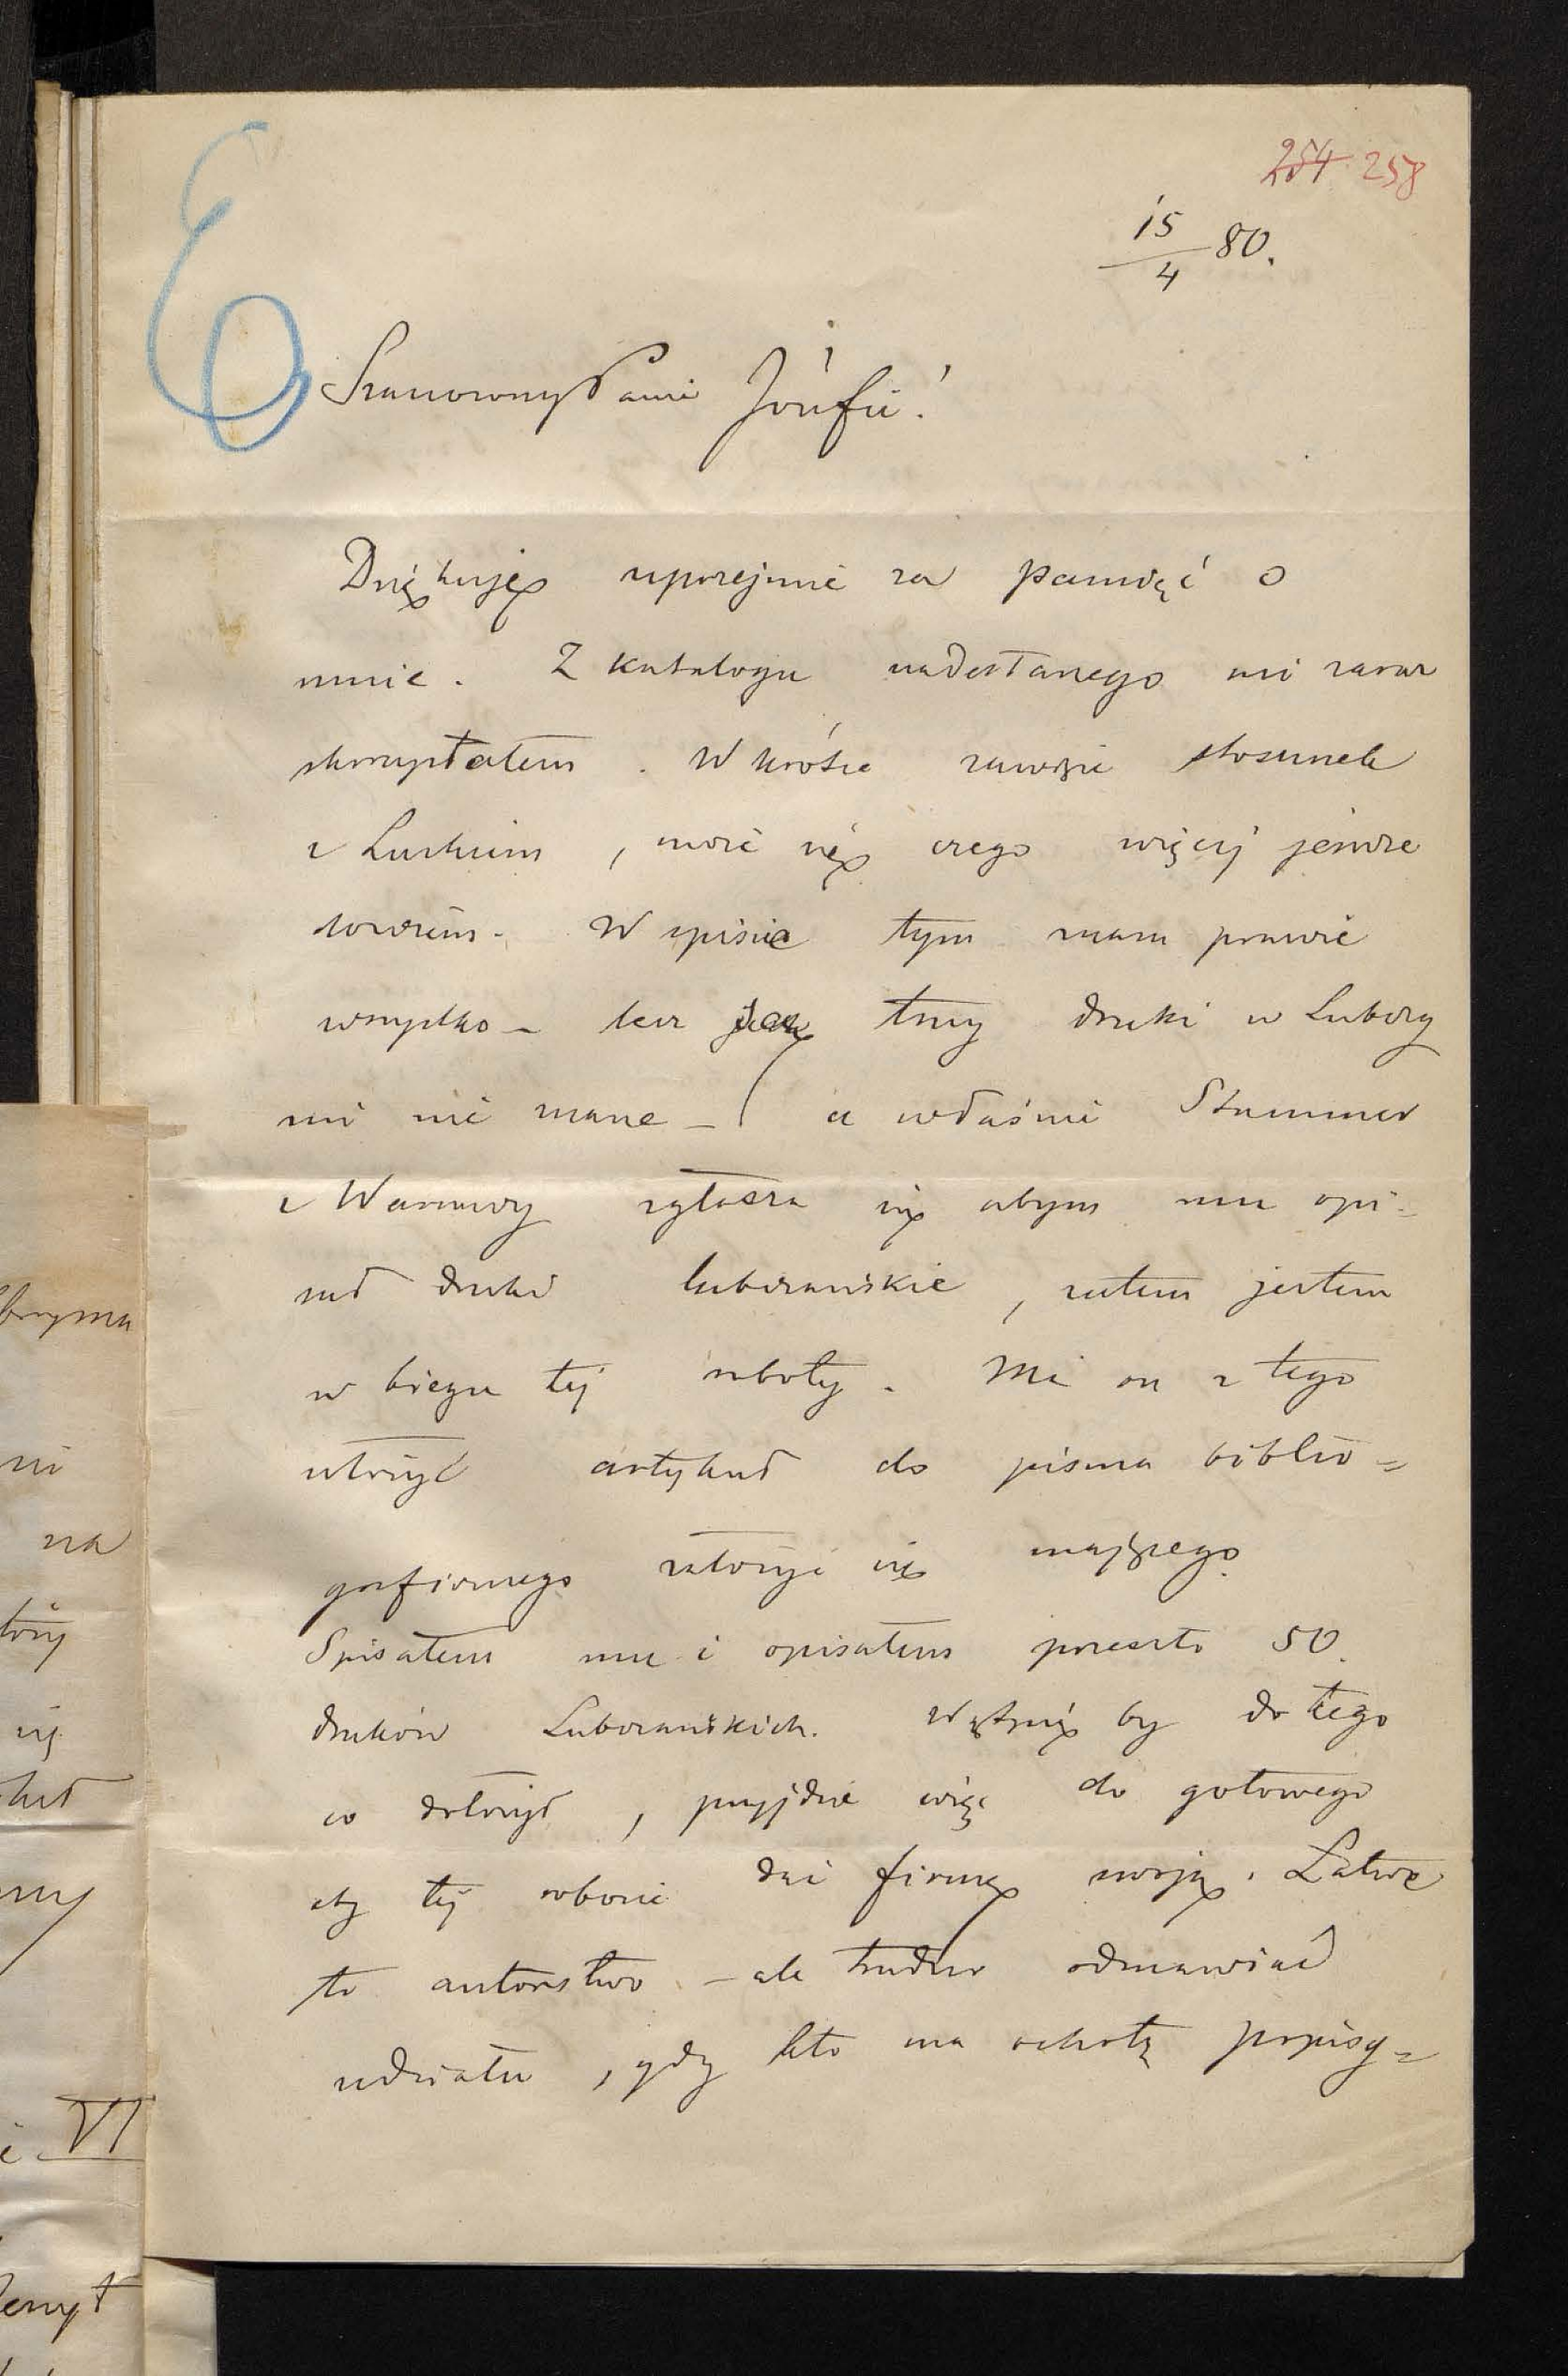 254 258
15/4 80.
Szanowny Panie Józefie!
Dziękuję uprzejmie za pamięć o
mnie. Z katalogu nadesłanego mi zaraz
skorzystałem. Wkrótce zawiążę stosunek
z Luckiem, może się czego więcej jeszcze
dowiem. W spisie tym znam prawie
wszystko – lecz są trzy druki w Lubczy
mi nie znane – a właśnie Stummer
z Warszawy zgłasza się abym mu opi=
sał druki lubczańskie, zatem jestem
w biegu tej roboty. Ma on z tego
utożyć artykuł do pisma biblio=
graficznego założyć się mającego.
Spisałem mu i opisałem przeszło 50.
druków Lubczańskich. Wątpię by do tego
co dołożył, przyjdzie więc do gotowego
aby tej robocie dać firmę swoją. Łatwe
to autorstwo – ale trudno odmawiać
udziału, gdy kto ma ochotę popisy=
bryma
ni
na
tóry
ię
kuł
i VI
zeszyt